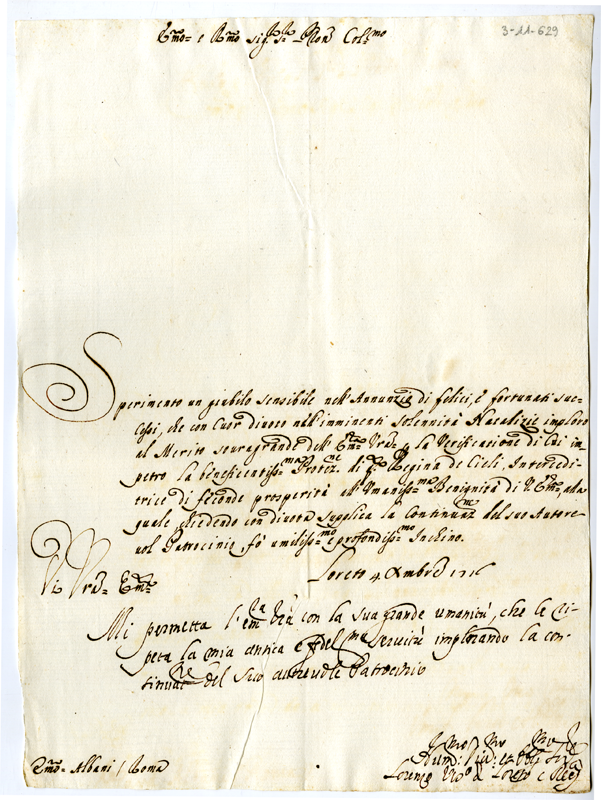 Emo e Rmo Sig.r Sig.r Pron Colmo
3-11-629
Sperimento un giubilo sensibile nell'Annunzio di felici, e fortunati suc-
cessi, che con Cuor divoto nell'imminenti Solennità Natalizie imploro
al Merito sovragrande dell'Emza Vra, e la Verificazione di Cui im-
petro la beneficentissma Protezne di q. Regina de Cieli, Intercedi-
trice di feconde prosperità all'Umanissma Benignità di V. Emza, alla
quale chiedendo con divota supplica la Continuazne del suo Autore-
vol Patrocinio, fò umilissmo e profondissmo Inchino.
Di Vra Emza
Loreto 4 Xmbre 1716
Mi permetta l'Emza Vra con la sua grande umanità, che le ri-
peta la mia antica e fidelma servitù implorando la con-
tinuaz.ne del suo autorevole Patrocinio
Lorenzo Vvo di Loreto e Rec
Emo Albani / Roma